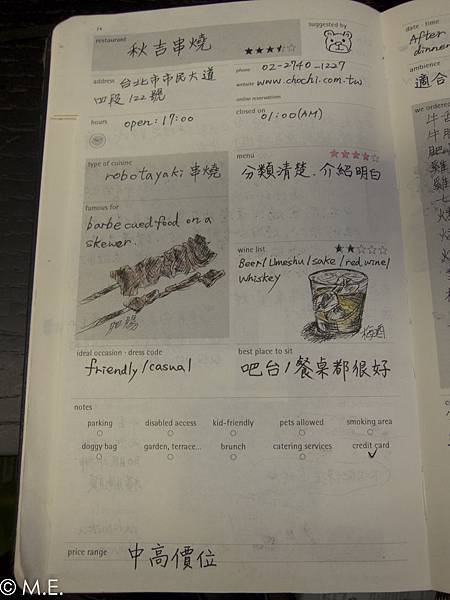 74
restaurant
秋吉串燒
suggested by
address
台北市市民大道
四段122號
phone
02-2740-1227
website
www.chochi.com.tw
online reservations
hours
open: 17:00
closed on
01:00(AM)
type of cuisine
robotayaki 串燒
menu
分類清楚.介紹明白
famous for
barbecued food on a
skewer.
肥腸
wine list
Beer/Umeshu/sake/red wine/
whiskey
梅酒
ideal occasion · dress code
friendly/casual
best place to sit
吧台/餐桌都很好
notes
parking
disabled access
kid-friendly
pets allowed
smoking area
doggy bag
garden, terrace...
brunch
catering services
credit card
price range
中高價位
date · time
After
dinner
ambience
適合
we ordered
© M.E.